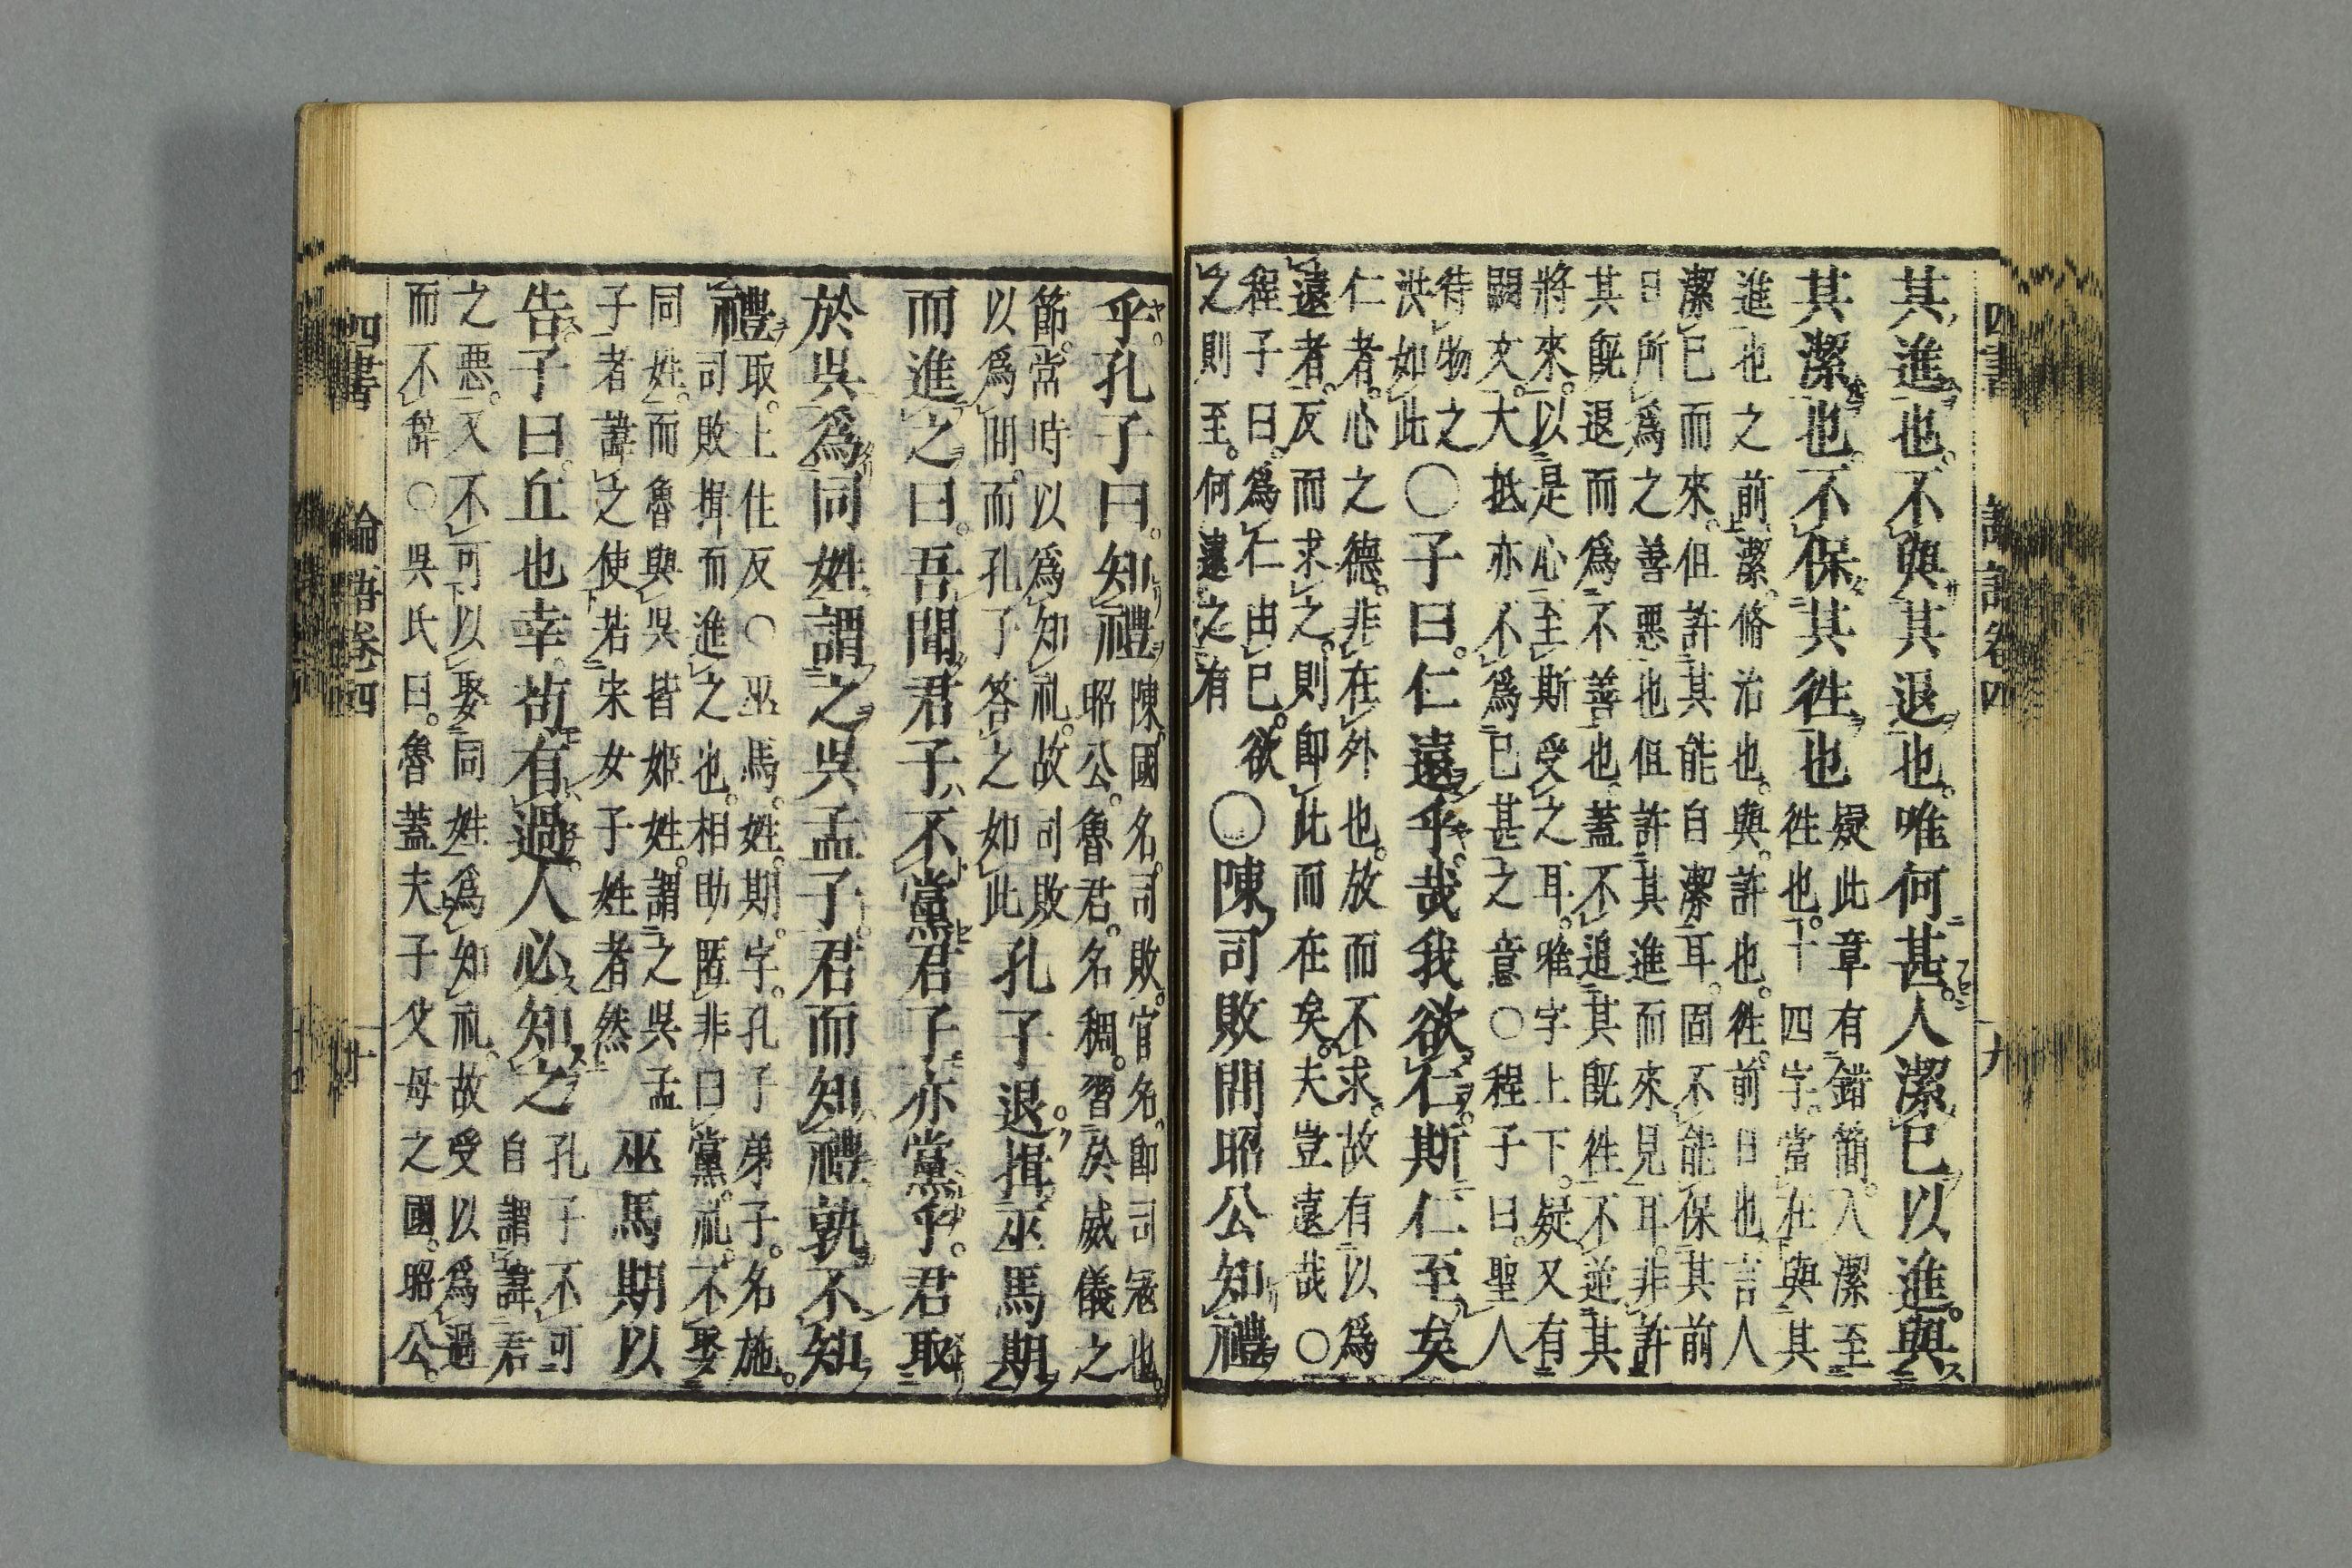 四書 論語卷四 十九
其進也不與其退也唯何甚人潔己以進與
其潔也不保其往也疑此章有錯簡人潔至
往也十四字當在與其
進也之前潔脩治也與許也往前日也言人
潔己而來但許其能自潔耳固不能保其前
日所爲之善惡也但許其進而來見耳非許
其旣退而爲不善也蓋不追其旣往不逆其
將來以是心至斯受之耳唯字上下疑又有
闕文大抵亦不爲已甚之意○程子曰聖人
待物之
洪如此○子曰仁遠乎哉我欲仁斯仁至矣
仁者心之德非在外也放而不求故有以爲
遠者反而求之則卽此而在矣夫豈遠哉○
程子曰爲仁由己欲
之則至何遠之有○陳司敗問昭公知禮
乎孔子曰知禮陳國名司敗官名卽司寇也
昭公魯君名稠習於威儀之
節當時以爲知礼故司敗
以爲問而孔子答之如此孔子退揖巫馬期
而進之曰吾聞君子不黨君子亦黨乎君取
於吳爲同姓謂之吳孟子君而知禮孰不知
禮取上住反○巫馬姓期字孔子弟子名施
司敗揖而進之也相助匿非曰黨礼不娶
同姓而魯與吳皆姬姓謂之吳孟
子者諱之使若宋女子姓者然巫馬期以
告子曰丘也幸苟有過人必知之孔子不可
自謂諱君
之惡又不可以娶同姓爲知礼故受以爲過
而不辭○吳氏曰魯蓋夫子父母之國昭公
四書 論語卷四 二十